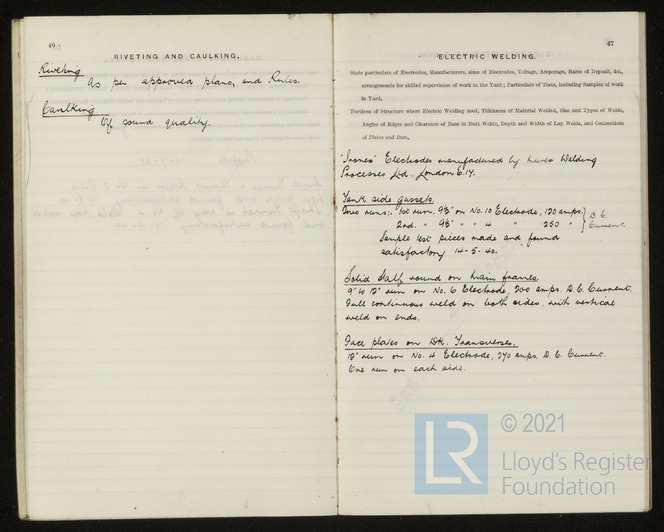 46
RIVETING AND CAULKING.
Riveting
As per approved plans, and Rules.
Caulking
Of sound quality.
47
ELECTRIC WELDING.
State particulars of Electrodes, Manufacturers, sizes of Electrodes, Voltage, Amperage, Rates of Deposit, &c.,
arrangements for skilled supervision of work in the Yard; Particulars of Tests, including Samples of work
in Yard,
Portions of Structure where Electric Welding used, Thickness of Material Welded, Size and Types of Welds,
Angles of Edges and Clearance of Base in Butt Welds, Depth and Width of Lap Welds, and Connections
of Plates and Bars,
Electrodes manufactured by Welding
Processes Ltd. London E.14.
Tank side gussets.
runs:- 1st run, 9½" on No. 10 Electrode, 120 amps.
2nd. " 9½" " " 4 " 250 "
D.C. Current.
Sample test pieces made and found
satisfactory 14-5-40.
Solid half round on main frames.
9" to 12" run on No. 6 Electrode, 200 amps. D.C. Current.
Full continuous weld on both sides, with vertical
weld on ends.
Face plates on Dk. Transverses.
12" run on No. 4 Electrode, 240 amps. D.C. Current.
One run on each side.
LR
© 2021
Lloyd's Register
Foundation